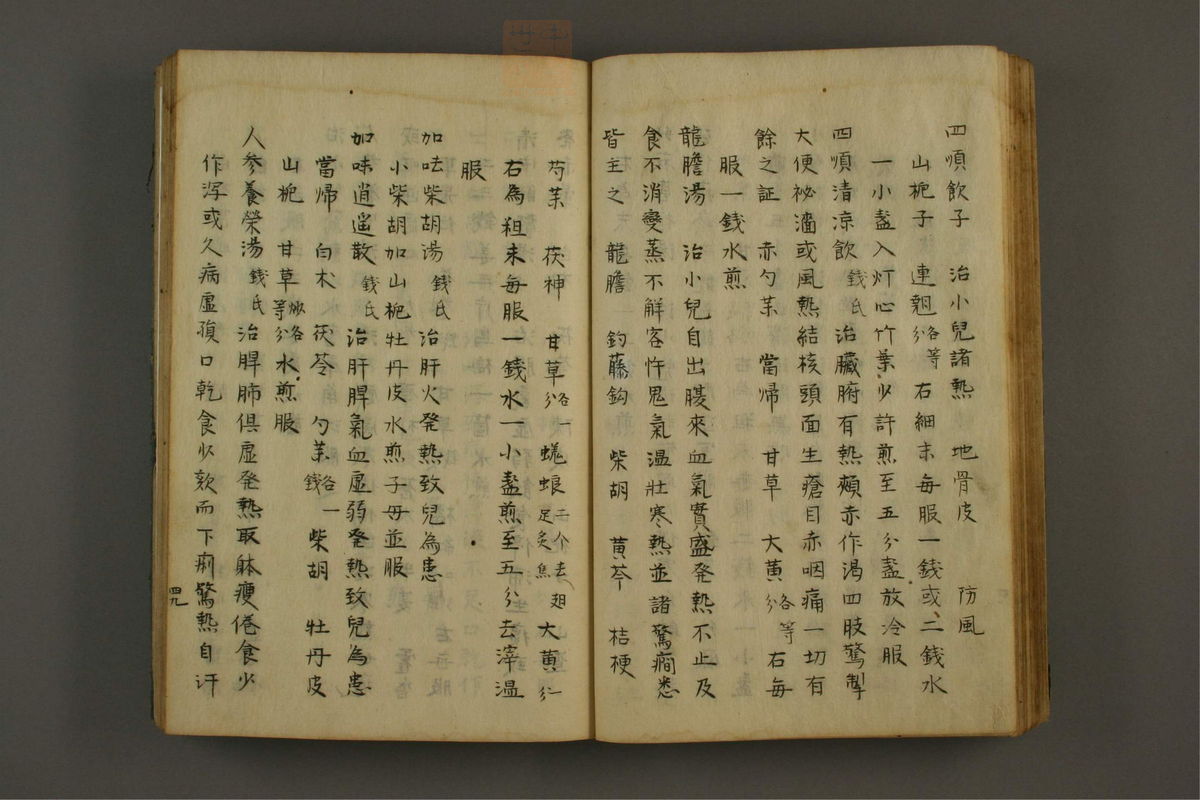 四順飲子　治小兒諸熱　地骨皮　防風
山梔子　連翹各等分　右細末每服一錢或二錢水
一小盞入灯心竹葉少許煎至五分盞放冷服
四順清凉飲錢氏　治臟腑有熱頰赤作渴四肢驚掣
大便祕濇或風熱結核頭面生瘡目赤咽痛一切有
餘之証　赤勺茱　當帰　甘草　大黄各等分　右每
服一錢水煎
龍膽湯　治小兒自出腹來血氣實盛発熱不止及
食不消變蒸不解客忤鬼氣温壯寒熱並諸驚癇悉
皆主之　龍膽　釣藤鈎　柴胡　黄芩　桔梗
芍茱　茯神　甘草各一分　蜣蜋二个去翅足炙焦　大黄一分
右為粗末每服一錢水一小盞煎至五分去滓温
服
加呿柴胡湯錢氏　治肝火発熱致兒為患
小柴胡加山梔牡丹皮水煎子母並服
加味逍遥散錢氏　治肝脾氣血虛弱発熱致兒為患
當帰　白朮　茯苓　勺茱各一錢　柴胡　牡丹皮
山梔　甘草炒各等分　水煎服
人参養榮湯錢氏　治脾肺俱虛発熱取躰瘦倦食少
作瀉或久病虛損口乾食少欬而下痢驚熱自汗
四九